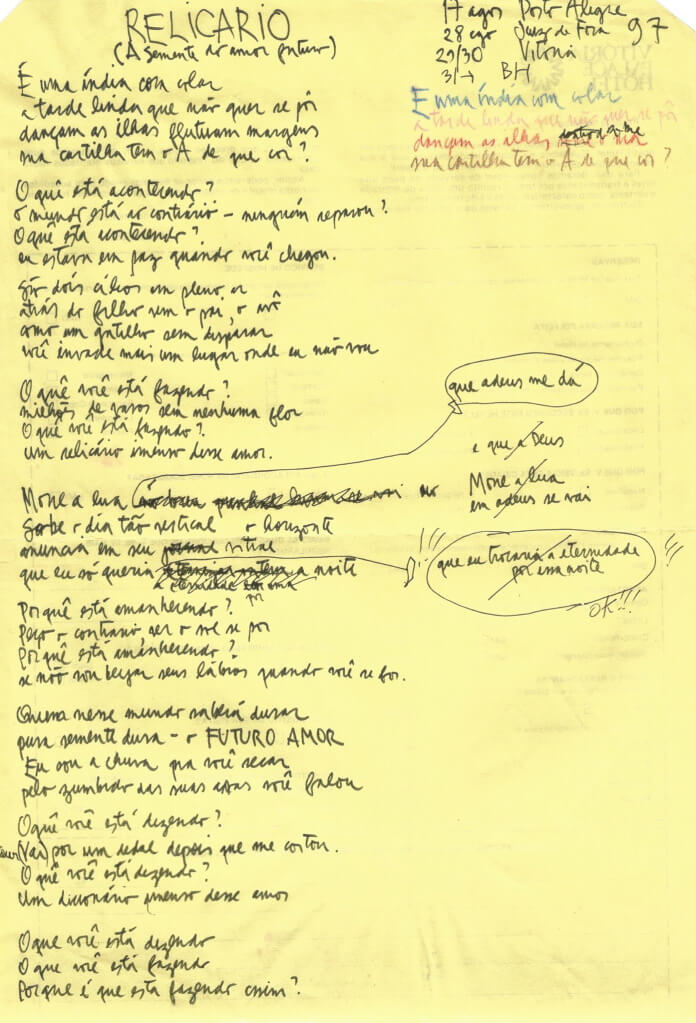 RELICARIO
(A semente do amor futuro)
17 agos Porto Alegre
28 ago Juiz de Fora
29/30 Vitória
31→ BH
97
É uma índia com colar
a tarde linda que não quer se pôr
dançam as ilhas flutuam margens
sua cartilha tem o A de que cor?
É uma índia com colar
a tarde linda que não quer se pôr
dançam as ilhas sobre o mar
sua cartilha tem o A de que cor?
O quê está acontecendo?
o mundo está ao contrário – ninguém reparou?
O quê está acontecendo?
eu estava em paz quando você chegou.
São dois cílios em pleno ar
atrás do filho vem o pai, o avô
como um gatilho sem disparar
você invade mais um lugar onde eu não vou
O quê você está fazendo?
milhões de vasos sem nenhuma flor
O quê você está fazendo?
um relicário imenso desse amor.
que adeus me dá
e que a Deus
Move a lua
em adeus se vai
Move a lua
Sobe o dia tão vertical o horizonte
anuncia em seu vitral
que eu só queria a noite
que eu trocaria a eternidade
por essa noite
OK!!!
Por quê está amanhecendo?
Peço o contrário ver o sol se por
Por quê está amanhecendo?
se não vou beijar seus lábios quando você se for.
Quem nesse mundo saberá durar
pura semente dura – o FUTURO AMOR
Eu sou a chuva pra você secar
pelo zumbido das suas asas você falou
O quê você está dizendo?
(Vai) por um dedal depois que me cortou.
O quê você está dizendo?
Um dicionário imenso desse amor
O que você está dizendo
O que você está fazendo
Por que é que está fazendo assim?